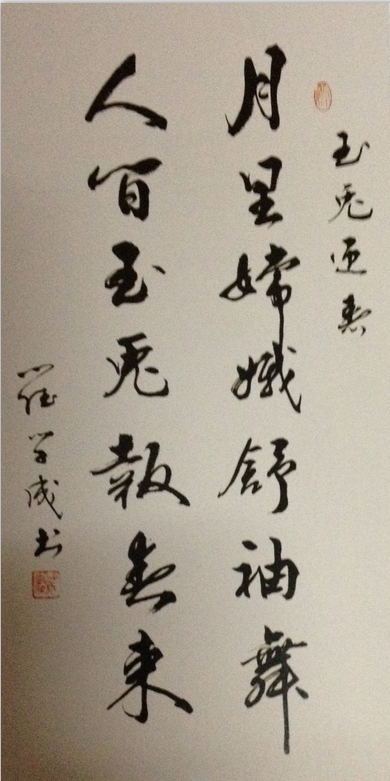 玉兔迎春
月里嫦娥舒袖舞
人间玉兔報春来
学成书